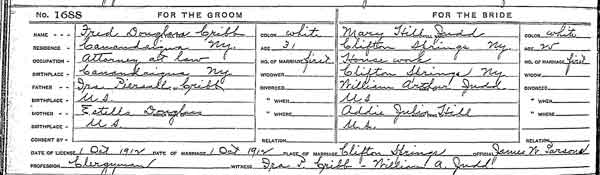 No. 1688 FOR THE GROOM FOR THE BRIDE
NAME - - - Fred Douglass Cribb COLOR white Mary Hill Judd COLOR white
RESIDENCE - Canandaigua Ny. AGE 31 Clifton Springs Ny. AGE
OCCUPATION - Attorney at law NO. OF MARRIAGE first House work NO. OF MARRIAGE first
BIRTHPLACE - Canandaigua Ny WIDOWER Clifton Springs Ny WIDOW
FATHER - - Ira Piersall Cribb DIVORCED William Arthur Judd DIVORCED
BIRTHPLACE - U.S. " WHEN U.S " WHEN
MOTHER - - Estella Douglass " WHERE Addie Julia Hill " WHERE
BIRTHPLACE - U.S. U.S.
CONSENT BY - RELATION RELATION
DATE OF LICENSE 1 Oct 1912 DATE OF MARRIAGE 1 Oct 1912 PLACE OF MARRIAGE Clifton Springs OFFICIAL James W. Parsons
PROFESSION Clergyman WITNESS Ira P. Cribb - William A. Judd